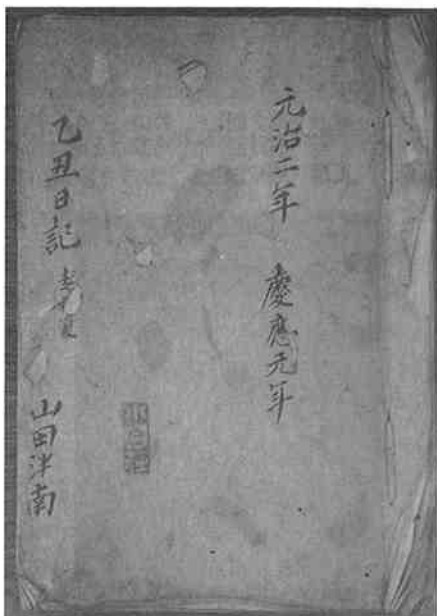 元治二年　慶應元年
乙丑日記
山田泮南